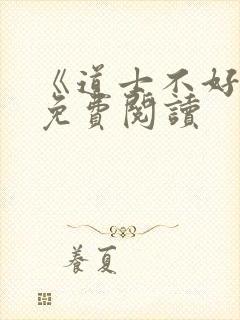 《道士不好
免費閱讀
養夏